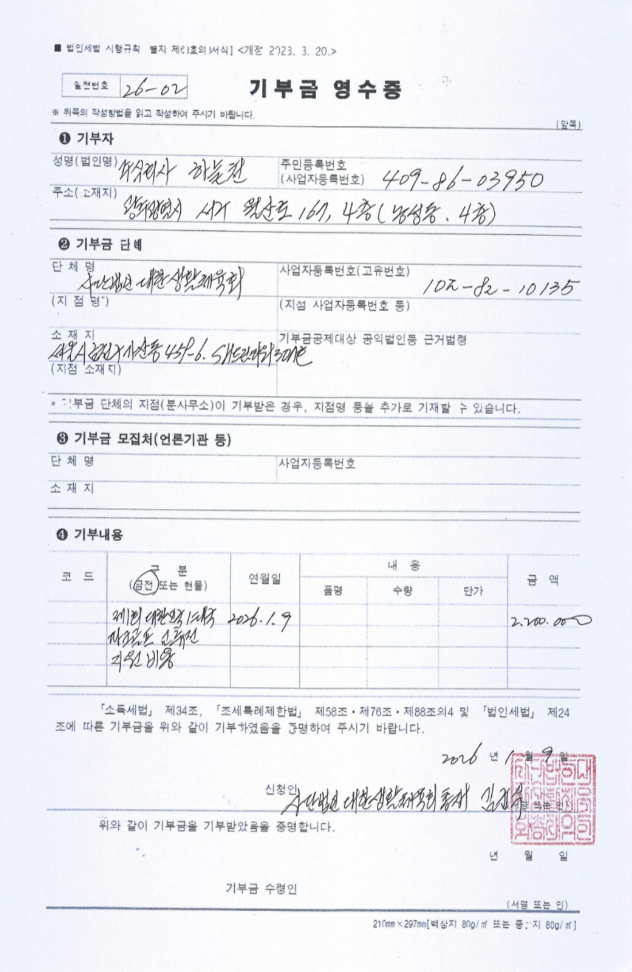 ■ 법인세법 시행규칙 별지 제63호의3서식] <개정 2023. 3. 20.>
일련번호 26-02
기부금 영수증
※ 뒤쪽의 작성방법을 읽고 작성하여 주시기 바랍니다.
(앞쪽)
❶ 기부자
성명(법인명) 주식회사 하늘천
주민등록번호
(사업자등록번호) 409-86-03950
주소(소재지) 광주광역시 서구 월산로 167, 4층(농성동, 4층)
❷ 기부금 단체
단 체 명 사단법인 대한생활체육회
사업자등록번호(고유번호) 102-82-10135
(지 점 명)
(지점 사업자등록번호 등)
소 재 지 서울시 금천구 가산동 459-6.
기부금공제대상 공익법인등 근거법령
(지점 소재지)
* 기부금 단체의 지점(분사무소)이 기부받은 경우, 지점명 등을 추가로 기재할 수 있습니다.
❸ 기부금 모집처(언론기관 등)
단 체 명
사업자등록번호
소 재 지
❹ 기부내용
코 드
구 분
(금전 또는 현물)
연월일
내 용
품명
수량
단가
금 액
제1회 대한민국 2026.1.9 2.200.000
파크골프
지원 비용
「소득세법」 제34조, 「조세특례제한법」 제58조·제76조·제88조의4 및 「법인세법」 제24
조에 따른 기부금을 위와 같이 기부하였음을 증명하여 주시기 바랍니다.
2026 년 1 월 9 일
신청인 사단법인 대한생활체육회 총재
위와 같이 기부금을 기부받았음을 증명합니다.
년 월 일
기부금 수령인
(서명 또는 인)
210mm×297mm[백상지 80g/㎡ 또는 중질지 80g/㎡]